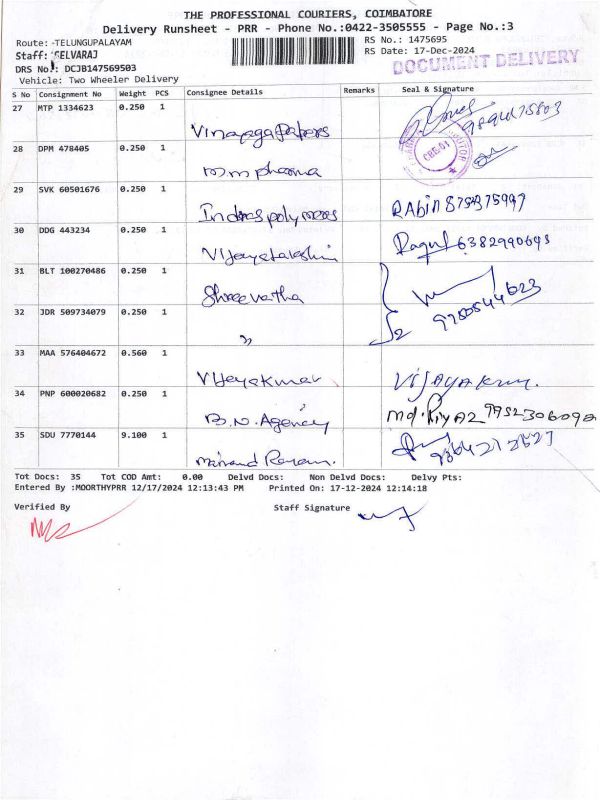 THE PROFESSIONAL COURIERS, COIMBATORE
Delivery Runsheet - PRR - Phone No.:0422-3505555 - Page No.:3
Route: TELUNGUPALAYAM
RS No.: 1475695
Staff: SELVARAJ
RS Date: 17-Dec-2024
DOCUMENT DELIVERY
DRS No.: DCJB147569503
Vehicle: Two Wheeler Delivery
S No Consignment No Weight PCS Consignee Details Remarks Seal & Signature
27 MTP 1334623 0.250 1
Vinayaga Papers
28 DPM 478405 0.250 1
CBE-01
m m pharma
29 SVK 60501676 0.250 1
Indras polymers RAbin 875
30 DDG 443234 0.250 1
Vijayalakshmi Ragul 6382990693
31 BLT 100270486 0.250 1
Shree vartha
32 JDR 509734079 0.250 1
"
2
33 MAA 576404672 0.560 1
Vijayakumar VIJAYAKUM.
34 PNP 600020682 0.250 1
B.N. Agency md. Riyaz
35 SDU 7770144 9.100 1
Tot Docs: 35 Tot COD Amt: 0.00 Delvd Docs: Non Delvd Docs: Delvy Pts:
Entered By :MOORTHYPRR 12/17/2024 12:13:43 PM Printed On: 17-12-2024 12:14:18
Verified By Staff Signature